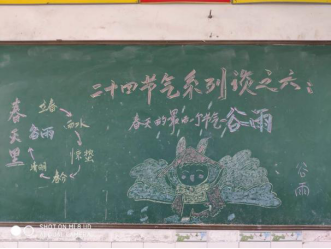 二十四节气系列谈之六：
春天的最后一个节气 谷雨
春天里
立春
雨水
惊蛰
春分
清明
谷雨
谷雨
SHOT ON MI 8 UD